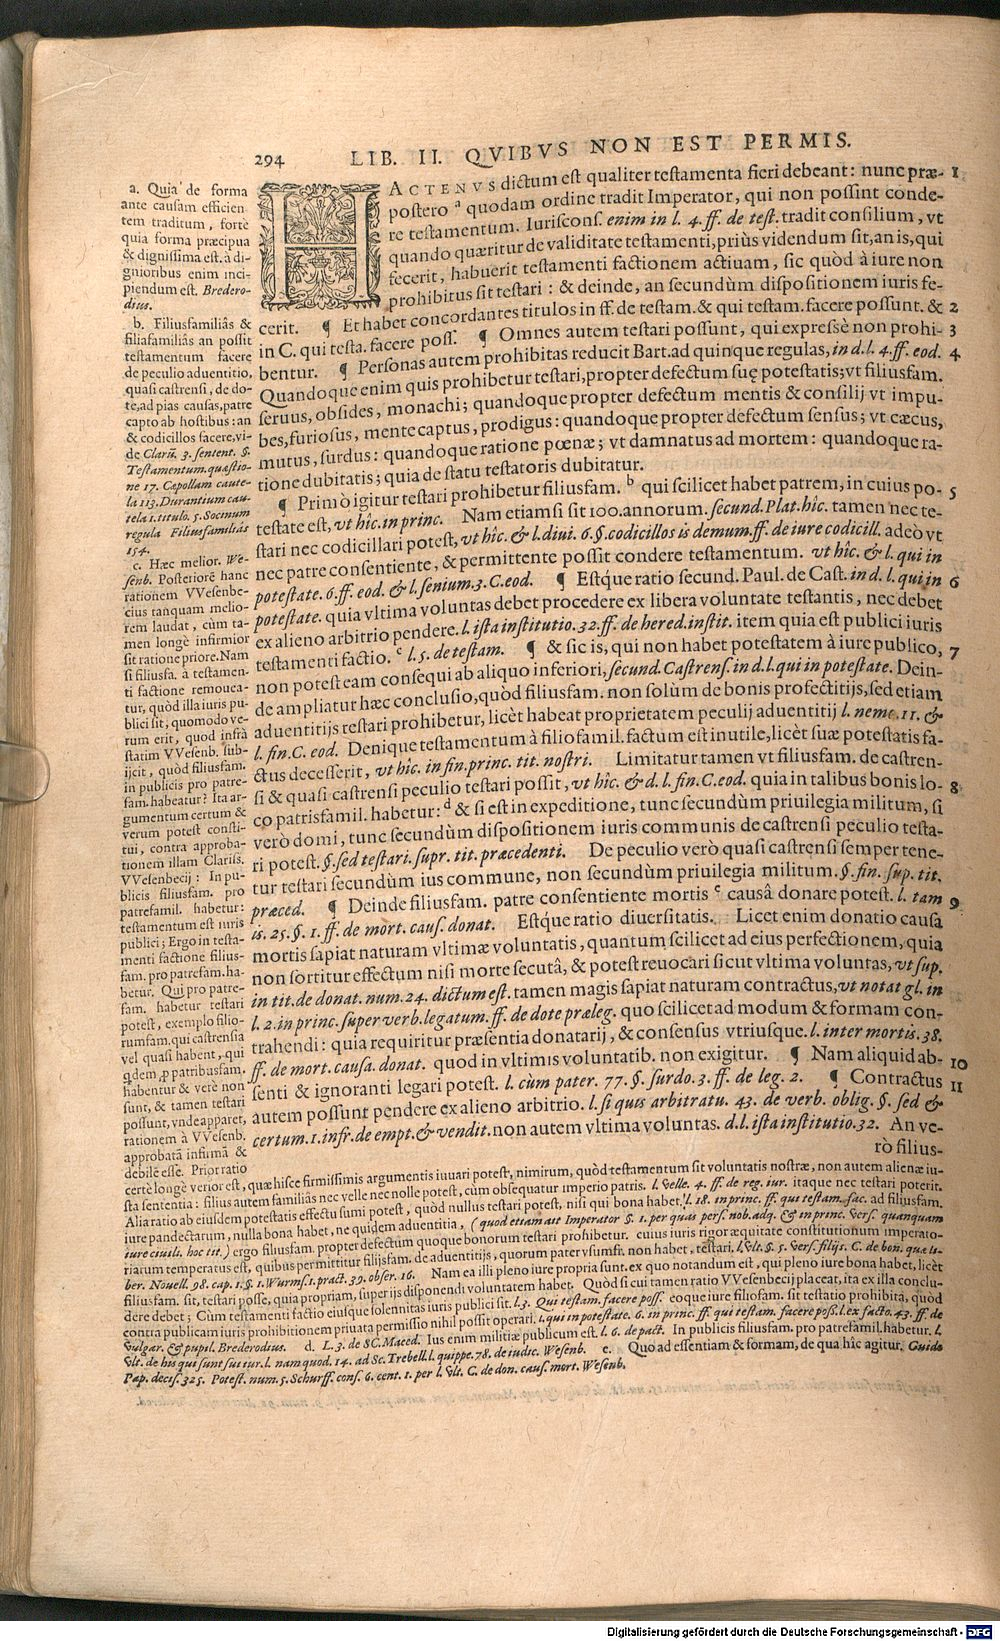 294 LIB. II. QVIBVS NON EST PERMIS.
HACTENVS dictum est qualiter testamenta fieri debeant: nunc præ- 1
postero a quodam ordine tradit Imperator, qui non possint conde-
re testamentum. Iuriscons. enim in l. 4. ff. de test. tradit consilium, vt
quando quæritur de validitate testamenti, priùs videndum sit, an is, qui
fecerit, habuerit testamenti factionem actiuam, sic quòd à iure non
prohibitus sit testari: & deinde, an secundùm dispositionem iuris fe-
cerit. ¶ Et habet concordantes titulos in ff. de testam. & qui testam. facere possunt. & 2
in C. qui testa. facere poss. ¶ Omnes autem testari possunt, qui expressè non prohi- 3
bentur. ¶ Personas autem prohibitas reducit Bart. ad quinque regulas, in d. l. 4. ff. eod. 4
Quandoque enim quis prohibetur testari, propter defectum suę potestatis; vt filiusfam.
seruus, obsides, monachi; quandoque propter defectum mentis & consilij vt impu-
bes, furiosus, mente captus, prodigus: quandoque propter defectum sensus; vt cæcus,
mutus, surdus: quandoque ratione pœnæ; vt damnatus ad mortem: quandoque ra-
tione dubitatis; quia de statu testatoris dubitatur.
¶ Primò igitur testari prohibetur filiusfam. b qui scilicet habet patrem, in cuius po- 5
testate est, vt hîc. in princ. Nam etiamsi sit 100. annorum. secund. Plat. hîc. tamen nec te-
stari nec codicillari potest, vt hîc. & l. diui. 6. §. codicillos is demum. ff. de iure codicill. adeò vt
nec patre consentiente, & permittente possit condere testamentum. vt hîc. & l. qui in
potestate. 6. ff. eod. & l. senium. 3. C. eod. ¶ Estque ratio secund. Paul. de Cast. in d. l. qui in 6
potestate. quia vltima voluntas debet procedere ex libera voluntate testantis, nec debet
ex alieno arbitrio pendere. l. ista institutio. 32. ff. de hered. instit. item quia est publici iuris
testamenti factio. c l. 5. de testam. ¶ & sic is, qui non habet potestatem à iure publico, 7
non potest eam consequi ab aliquo inferiori, secund. Castrens. in d. l. qui in potestate. Dein-
de ampliatur hæc conclusio, quòd filiusfam. non solùm de bonis profectitijs, sed etiam
aduentitijs testari prohibetur, licèt habeat proprietatem peculij aduentitij l. nemo. 11. &
l. fin. C. eod. Denique testamentum à filiofamil. factum est inutile, licèt suæ potestatis fa-
ctus decesserit, vt hîc. in fin. princ. tit. nostri. Limitatur tamen vt filiusfam. de castren-
si & quasi castrensi peculio testari possit, vt hîc. & d. l. fin. C. eod. quia in talibus bonis lo- 8
co patrisfamil. habetur: d & si est in expeditione, tunc secundùm priuilegia militum, si
verò domi, tunc secundùm dispositionem iuris communis de castrensi peculio testa-
ri potest. §. sed testari. supr. tit. præcedenti. De peculio verò quasi castrensi semper tene-
tur testari secundùm ius commune, non secundùm priuilegia militum. §. fin. sup. tit.
præced. ¶ Deinde filiusfam. patre consentiente mortis e causâ donare potest. l. tam 9
is. 25. §. 1. ff. de mort. caus. donat. Estque ratio diuersitatis. Licet enim donatio causa
mortis sapiat naturam vltimæ voluntatis, quantum scilicet ad eius perfectionem, quia
non sortitur effectum nisi morte secutâ, & potest reuocari sicut vltima voluntas, vt sup.
in tit. de donat. num. 24. dictum est. tamen magis sapiat naturam contractus, vt notat gl. in
l. 2. in princ. super verb. legatum. ff. de dote præleg. quo scilicet ad modum & formam con-
trahendi: quia requiritur præsentia donatarij, & consensus vtriusque. l. inter mortis. 38.
ff. de mort. causa. donat. quod in vltimis voluntatib. non exigitur. ¶ Nam aliquid ab- 10
senti & ignoranti legari potest. l. cùm pater. 77. §. surdo. 3. ff. de leg. 2. ¶ Contractus 11
autem possunt pendere ex alieno arbitrio. l. si quis arbitratu. 43. de verb. oblig. §. sed &
certum. 1. infr. de empt. & vendit. non autem vltima voluntas. d. l. ista institutio. 32. An ve-
rò filius-
a. Quia de forma
ante causam efficien
tem traditum, fortè
quia forma præcipua
& dignissima est. à di-
gnioribus enim inci-
piendum est. Bredero-
dius.
b. Filiusfamiliâs &
filiafamiliâs an possit
testamentum facere
de peculio aduentitio,
quasi castrensi, de do-
te, ad pias causas, patre
capto ab hostibus: an
& codicillos facere, vi-
de Clarũ. 3. sentent. §.
Testamentum. quæstio-
ne 17. Cæpollam caute-
la 113. Durantium cau-
tela 1. titulo. 5. Socinum
regula Filiusfamiliâs
154.
c. Hæc melior. We-
senb. Posteriorẽ hanc
rationem VVesenbe-
cius tanquam melio-
rem laudat, cùm ta-
men longè infirmior
sit ratione priore. Nam
si filiusfa. à testamen-
ti factione remouea-
tur, quòd illa iuris pu-
blici sit, quomodo ve-
rum erit, quod infrà
statim VVesenb. sub-
ijcit, quòd filiusfam.
in publicis pro patre-
fam. habeatur? Ita ar-
gumentum certum &
verum potest consti-
tui, contra approba-
tionem illam Clariss.
VVesenbecij: In pu-
blicis filiusfam. pro
patrefamil. habetur:
testamentum est iuris
publici; Ergo in testa-
menti factione filius-
fam. pro patrefam. ha-
betur. Qui pro patre-
fam. habetur testari
potest, exemplo filio-
rumfam. qui castrensia
vel quasi habent, qui
qdem, p patribusfam.
habentur & verè non
sunt, & tamen testari
possunt, vnde apparet,
rationem à VVesenb.
approbatã infirmã &
debilẽ esse. Prior ratio
certè longè verior est, quæ hisce firmissimis argumentis iuuari potest, nimirum, quòd testamentum sit voluntatis nostræ, non autem alienæ iu-
sta sententia: filius autem familiâs nec velle nec nolle potest, cùm obsequatur imperio patris. l. velle. 4. ff. de reg. iur. itaque nec testari poterit.
Alia ratio ab eiusdem potestatis effectu sumi potest, quòd nullus testari potest, nisi qui bona habet. l. 18. in princ. ff. qui testam. fac. ad filiusfam.
iure pandectarum, nulla bona habet, ne quidem aduentitia, (quod etiam ait Imperator §. 1. per quas pers. nob. adq. & in princ. vers. quanquam
iure ciuili. hoc tit.) ergo filiusfam. propter defectum quoque bonorum testari prohibetur. cuius iuris rigor æquitate constitutionum imperato-
riarum temperatus est, quibus permittitur filijsfam. de aduentitijs, quorum pater vsumfr. non habet, testari. l. vlt. §. 5. vers. filijs. C. de bon. quæ li-
ber. Nouell. 98. cap. 1. §. 1. Wurms. 1. pract. 39. obser. 16. Nam ea illi pleno iure propria sunt. ex quo notandum est, qui pleno iure bona habet, licèt
filiusfam. sit, testari posse, quia propriam, super ijs disponendi voluntatem habet. Quòd si cui tamen ratio VVesenbecij placeat, ita ex illa conclu-
dere debet; Cùm testamenti factio eiusque solennitas iuris publici sit. l. 3. Qui testam. facere poss. eoque iure filiofam. sit testatio prohibita, quòd
contra publicam iuris prohibitionem priuata permissio nihil possit operari. l. qui in potestate. 6. in princ. ff. qui testam. facere poss. l. ex facto. 43. ff. de
vulgar. & pupil. Brederodius. d. L. 3. de SC. Maced. Ius enim militiæ publicum est. l. 6. de pact. In publicis filiusfam. pro patrefamil. habetur. l.
vlt. de his qui sunt sui iur. l. nam quod. 14. ad Sc. Trebell. l. quippe. 78. de iudic. Wesenb. e. Quo ad essentiam & formam, de qua hîc agitur. Guido
Pap. decis. 325. Potest. num. 5. Schurff. cons. 6. cent. 1. per l. vlt. C. de don. caus. mort. Wesenb.
Digitalisierung gefördert durch die Deutsche Forschungsgemeinschaft - DFG